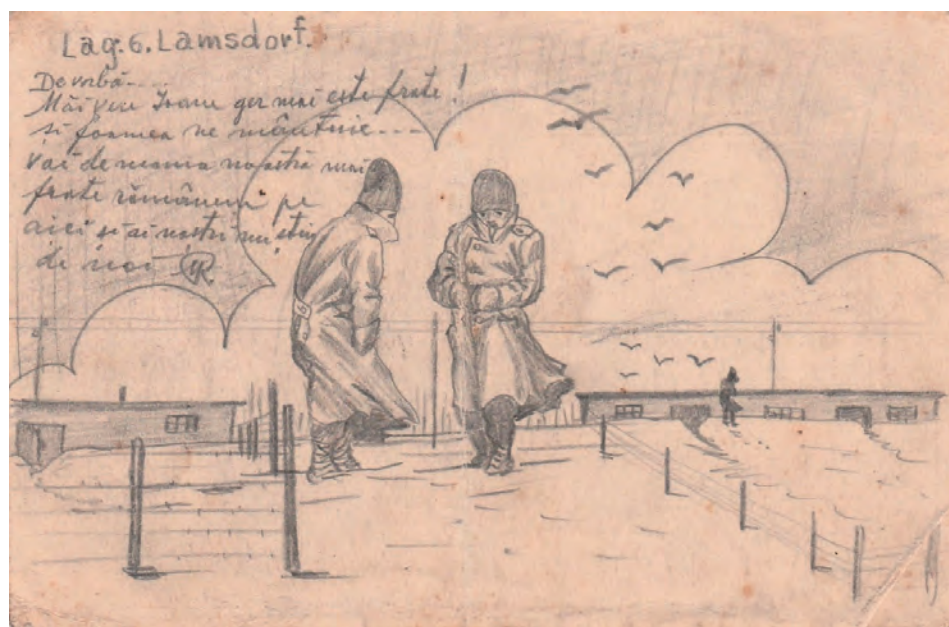 Lag. 6. Lamsdorf.
De vorbă...
Măi vere Ioane ger mai este frate!
și foamea ne mântuie...
vai de mama noastră măi
frate românem pe
aici și ai noștri nu știu
de noi